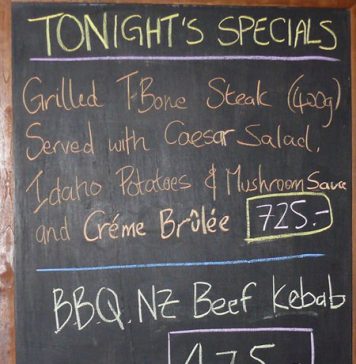 TONIGHT'S SPECIALS
Grilled T-Bone Steak (400g)
Served with Caesar Salad,
Idaho Potatoes & Mushroom Sauce
and Créme Brûlée 725.-
B.B.Q. NZ Beef Kebab
475